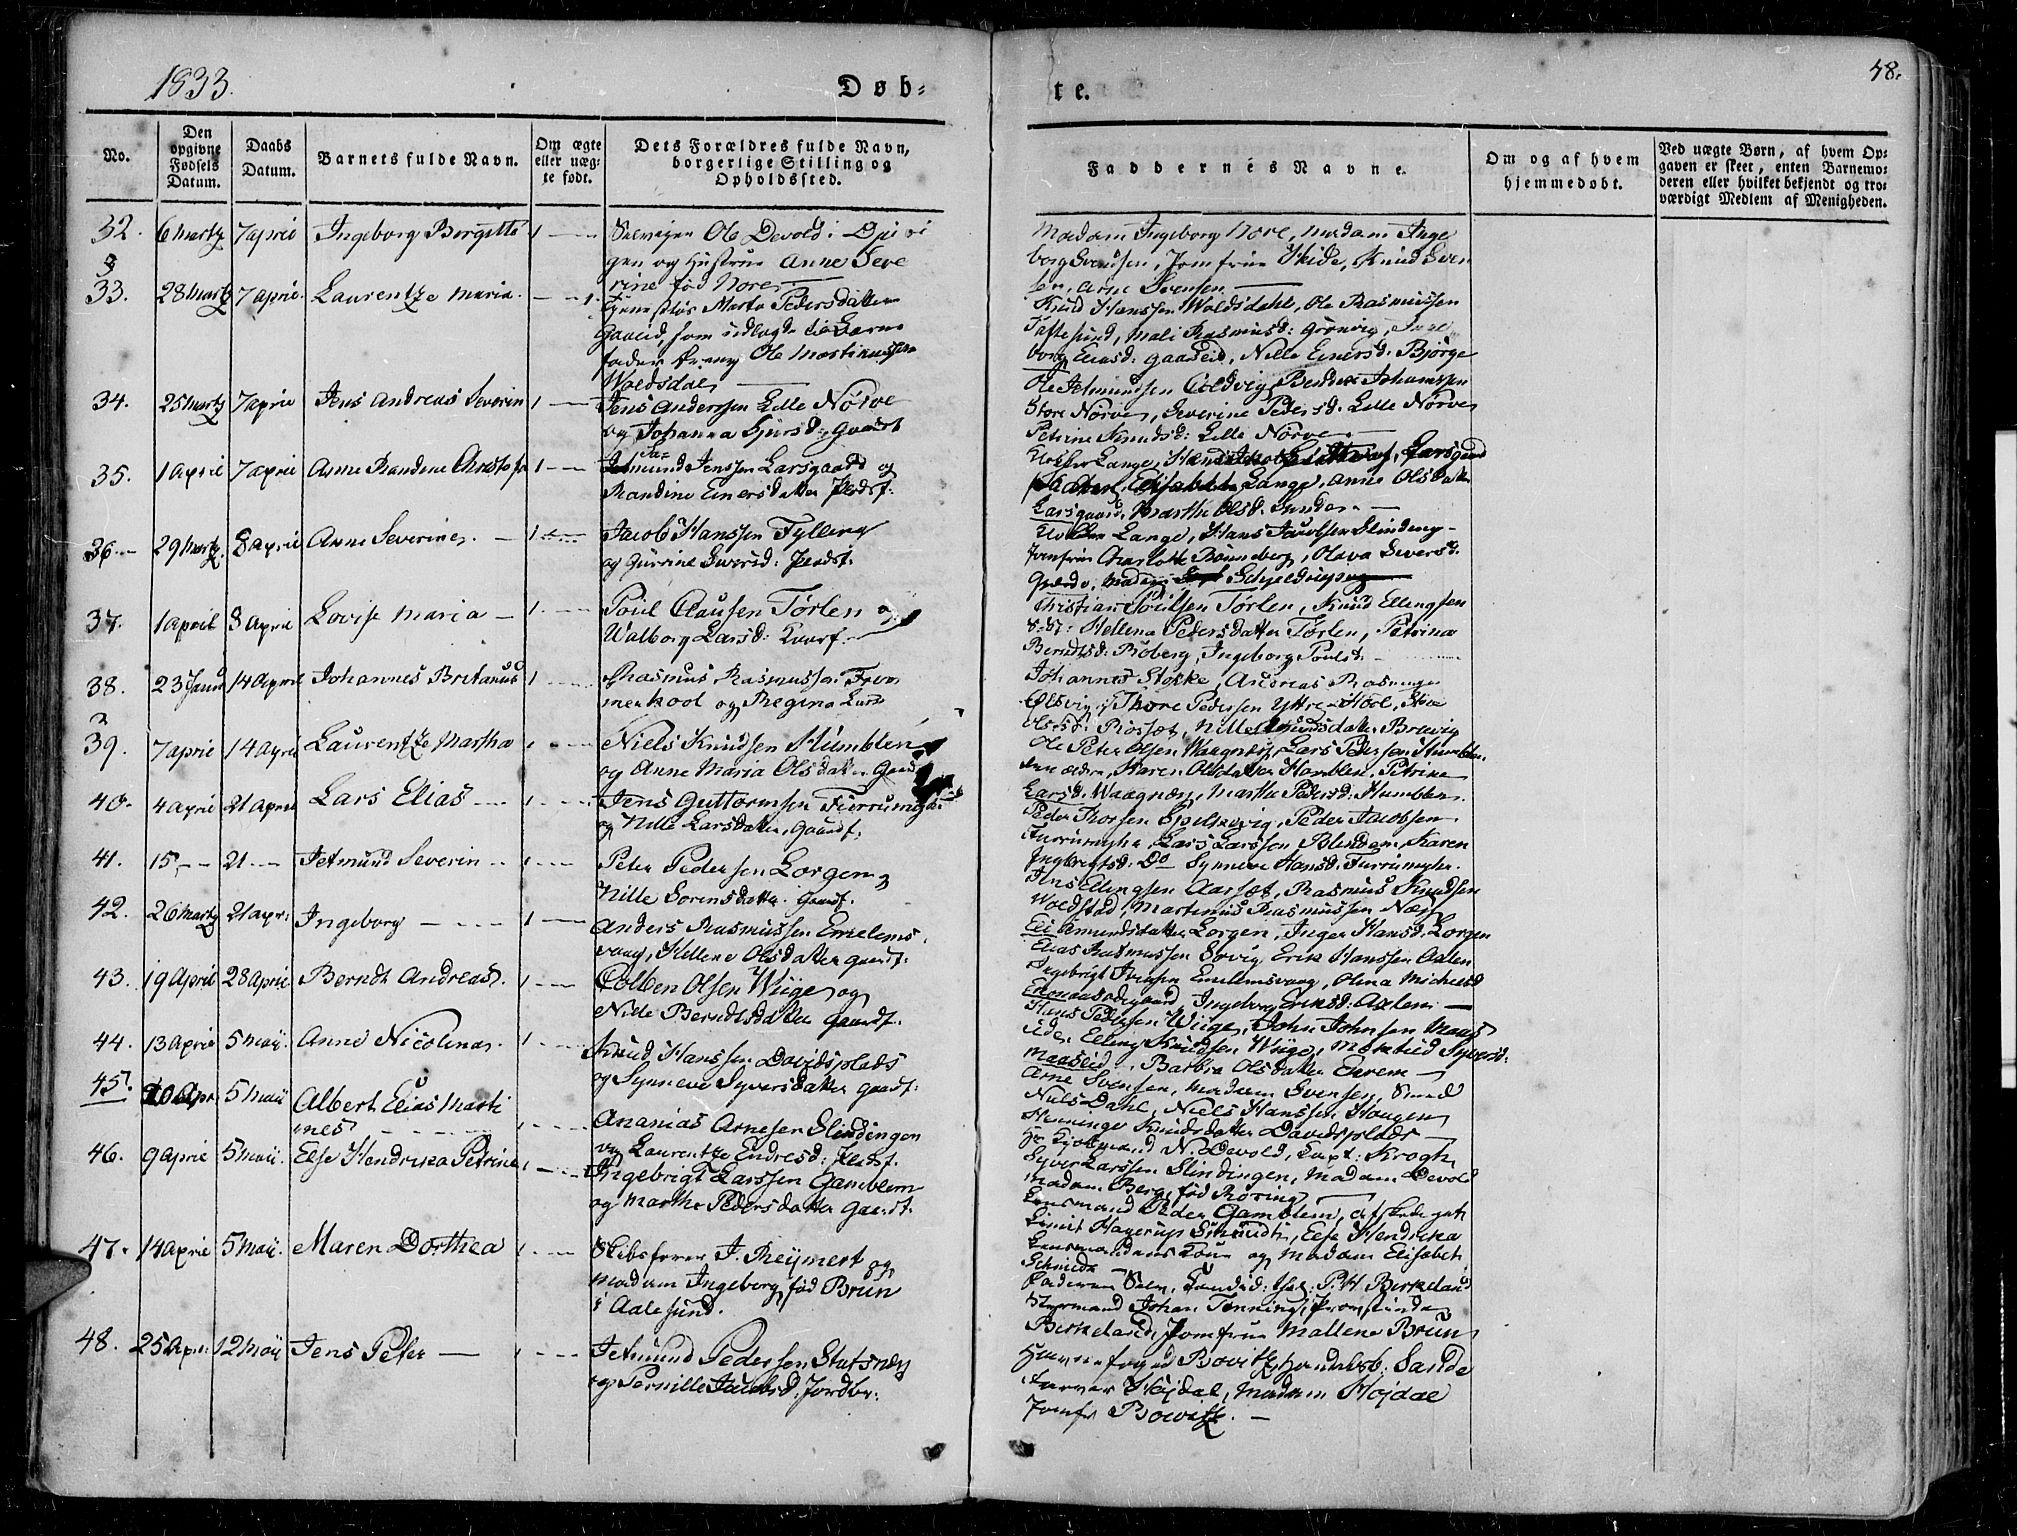 1833.
Døb-
te.
48.
No.
Den opgivne Fødsels Datum.
Daabs Datum.
Barnets fulde Navn.
Om ægte eller uægte født.
Dets Forældres fulde Navn, borgerlige Stilling og Opholdssted.
Faddernes Navne.
Om og af hvem hjemmedøbt.
Ved uægte Børn, af hvem Opgaven er skeet, enten Barnemoderen eller hvilket bekjendt og troværdigt Medlem af Menigheden.
32. 6 Martz 7 April Ingeborg Bergitte 1
Ole Devold i
og Hustrue Anne Seve
rine fød Nore
Madam Ingeborg Nore, Madam Inge
borg Svendsen, Jomfrue Heide, Knud Sven
sen, Arne Svensen
33. 28 Martz 7 April Laurentze Maria 1
Marte Pedersdatter
Gaaeid, som udlagde til Barne
fader Ole Martinussen
Woldsdal
Knud Hanssen Woldsdahl, Ole Rasmussen
Toftesund, Mali Rasmusd: Grønvig, Inge
borg Eliasd: Gaaseid, Nille Einersd: Bjørge
34. 25 Martz 7 April Jens Andreas Severin 1
Jens Anderssen Lille Nørve
og Johanna Sjursd: Gaardf
Ole Jetmundsen Coldvig, Bendix Johanssen
Store Nørve, Severine Pedersd: Lille Nørve
Petrine Knudsd: Lille Nørve
35. 1 April 7 April Anne Randene Christofa 1
Jetmund Jenssen Larsgaard og
Randine Einersdatter Pladsf:
Lange, Larsgaard
Elisabeth Lange, Anne Olsdatter
Larsgaard, Marthe Olsd:
36. 29 Martz 8 April Anne Severine 1
Jacob Hanssen Fylling
og Gurine Iversd: Pladsf:
Lange, Hans Jacobsen Slinding
Jomfrue Charlotte Bonneberg, Olava Siversd:
Madam Schjeldrup
37. 1 April 8 April Lovise Maria 1
Poul Clausen Tørlen og
Walborg Larsd: Gaardf.
Christian Poulsen Tørlen, Knud Ellingsen
Hellena Pedersdatter Tørlen, Petrina
Berndtsd: Roberg, Ingeborg Poulsd:
38. 23 Janu 14 April Johannes Britanus 1
Rasmus Rasmussen Frem
merhool og Regina Larsd
Johannes Stokke, Andreas Rasmussen
Olsvig, Thore Pedersen Yttre-Hole,
Olsd: Rossæt, Nille Amundsdatter Brevig
39. 7 April 14 April Laurentze Martha 1
Niels Knudsen Humblen
og Anne Maria Olsdatter Gaardf
Ole Peter Olsen Waagnæs, Lars Pedersen Humblen
den ældre, Karen Olsdatter Humblen, Petrine
Larsd: Waagnæs, Marthe Pedersd: Humblen.
40. 4 April 21 April Lars Elias 1
Jens Guttormsen Furrumyhr
og Nille Larsdatter, Gaardf.
Peder Thorsen Spilkevig, Peder Jacobsen
Furrumyhr, Lars Larssen Blindem, Karen
Ingbrigtsd: Do Synneve Hansd: Furrumyhr.
41. 15 21 Jetmund Severin 1
Peter Pedersen Lorgen
Nille Sørensdatter. Gaardf.
Jens Ellingsen Aarsæt, Rasmus Knudsen
Woldstad, Martinus Rasmussen Næs
Eli Amundsdatter Lorgen, Inger Hansd: Lorgen
42. 26 Martz 21 apr: Ingeborg 1
Anders Rasmussen Emlems
vaag, Hellene Olsdatter Gaardf.
Elias Rasmussen Sørvig Erik Hanssen Aalen
Ingebrigt Iversen Emlemsvaag, Olina Michelsd
Ingeborg Eriksd: Aalen
43. 19 April 28 April Berndt Andreas 1
Colben Olsen Wiige og
Nille Berndtsdatter Gaardf.
Hans Pedersen Wiige, John Johnsen Maas
eide, Elling Knudsen Wiige, Syversd:
Maaseid, Barbra Olsdatter
44. 13 April 5 Maii Anne Nicolina 1
Knud Hanssen Davidsplads
og Synneve Syversdatter Gaardf.
Arne Svensen, Madam Svensen,
Niels Dahl, Niels Hanssen Haugen
Henninge Knudsdatter Davidsplads
45. 20 Apr. 5 Maii Albert Elias Marti
nes 1
Ananias Arnesen Slindingen
og Laurentze Endresd: Pladsf.
Hr Kjøbmand N. Devold, Capt: Krogh
Syver Larssen Slindingen, Madam Devold
Madam Berg, fød Røring
46. 9 April 5 Maii Else Hendrika Petrine 1
Ingebrigt Larssen Gamblem
og Marthe Pedersdatter Gaardf.
Lensmand Peder Gamblem, afskediget
Hagerup Smidt, Else Hendrika
Lensmandens Kone og Madam Elisabet
Schmidt
47. 14 April 5 Maii Maren Dorthea 1
Skibsfører J. Reymert og
Madam Ingeborg, fød Brun
i Aalesund.
Faderen Selv, Candid: theol: P. H. Birkeland
Styrmand Johan Tønning, Provstinde
Birkeland, Jomfrue Mallene Brun
48. 25 Apr: 12 Maii Jens Peter 1
Jetmund Pedersen Slatsnæs
og Pernille Jacobsd: Jordbr:
Havnefoged Bowitz, Handelsb: Sande
Garver Højdal, Madam Højdal
Jomfr Bowitz.